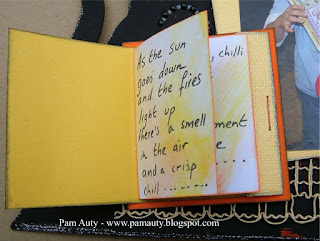 As the sun
goes down
and the fires
light up
there's a smell
in the air
and a crisp
chill ........
, chilli
ment
e
....
Pam Auty - www.pamauty.blogspot.com